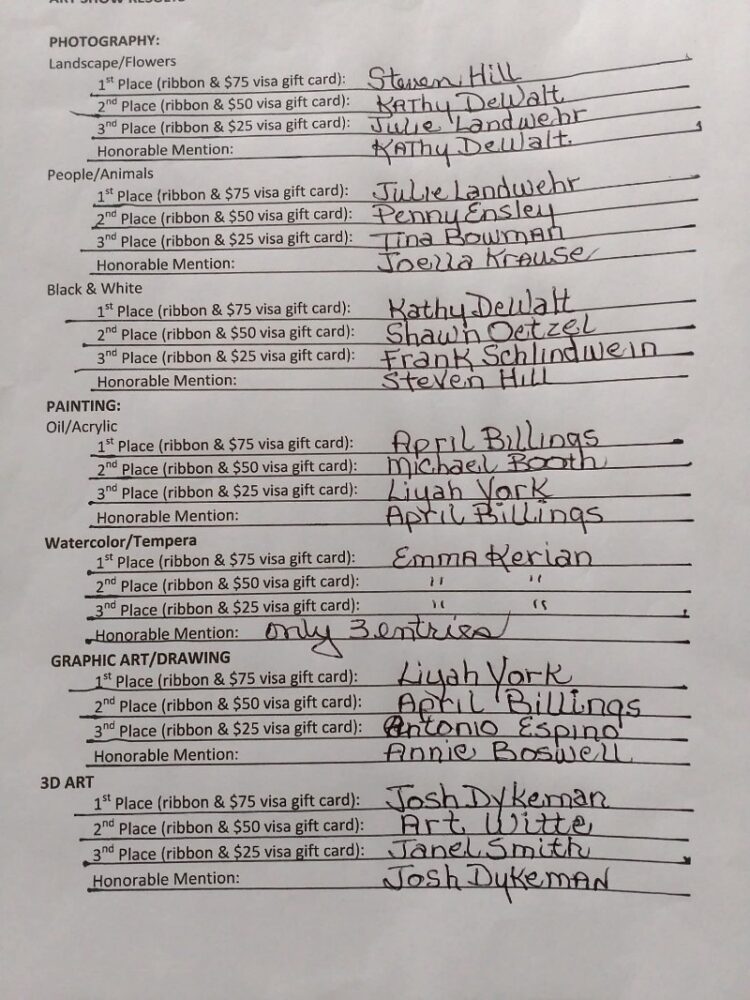 ART SHOW RESULTS
PHOTOGRAPHY:
Landscape/Flowers
1st Place (ribbon & $75 visa gift card): Steven Hill
2nd Place (ribbon & $50 visa gift card): Kathy DeWalt
3rd Place (ribbon & $25 visa gift card): Julie Landwehr
Honorable Mention: Kathy DeWalt.
People/Animals
1st Place (ribbon & $75 visa gift card): Julie Landwehr
2nd Place (ribbon & $50 visa gift card): Penny Ensley
3rd Place (ribbon & $25 visa gift card): Tina Bowman
Honorable Mention: Joella Krause
Black & White
1st Place (ribbon & $75 visa gift card): Kathy DeWalt
2nd Place (ribbon & $50 visa gift card): Shawn Oetzel
3rd Place (ribbon & $25 visa gift card): Frank Schlindwein
Honorable Mention: Steven Hill
PAINTING:
Oil/Acrylic
1st Place (ribbon & $75 visa gift card): April Billings
2nd Place (ribbon & $50 visa gift card): Michael Booth
3rd Place (ribbon & $25 visa gift card): Liyah York
Honorable Mention: April Billings
Watercolor/Tempera
1st Place (ribbon & $75 visa gift card): Emma Kerian
2nd Place (ribbon & $50 visa gift card): " "
3rd Place (ribbon & $25 visa gift card): " "
Honorable Mention: only 3 entries
GRAPHIC ART/DRAWING
1st Place (ribbon & $75 visa gift card): Liyah York
2nd Place (ribbon & $50 visa gift card): April Billings
3rd Place (ribbon & $25 visa gift card): Antonio Espino
Honorable Mention: Annie Boswell
3D ART
1st Place (ribbon & $75 visa gift card): Josh Dykeman
2nd Place (ribbon & $50 visa gift card): Art Witte
3rd Place (ribbon & $25 visa gift card): Janel Smith
Honorable Mention: Josh Dykeman